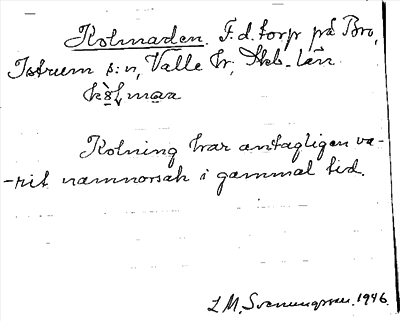 Kolmaden. F.d. torp på Bro,
Istrum s:n, Valle hr, Skb. län
Kolning har antagligen va-
-rit namnorsak i gammal tid.
L M, Svenungsson. 1946.